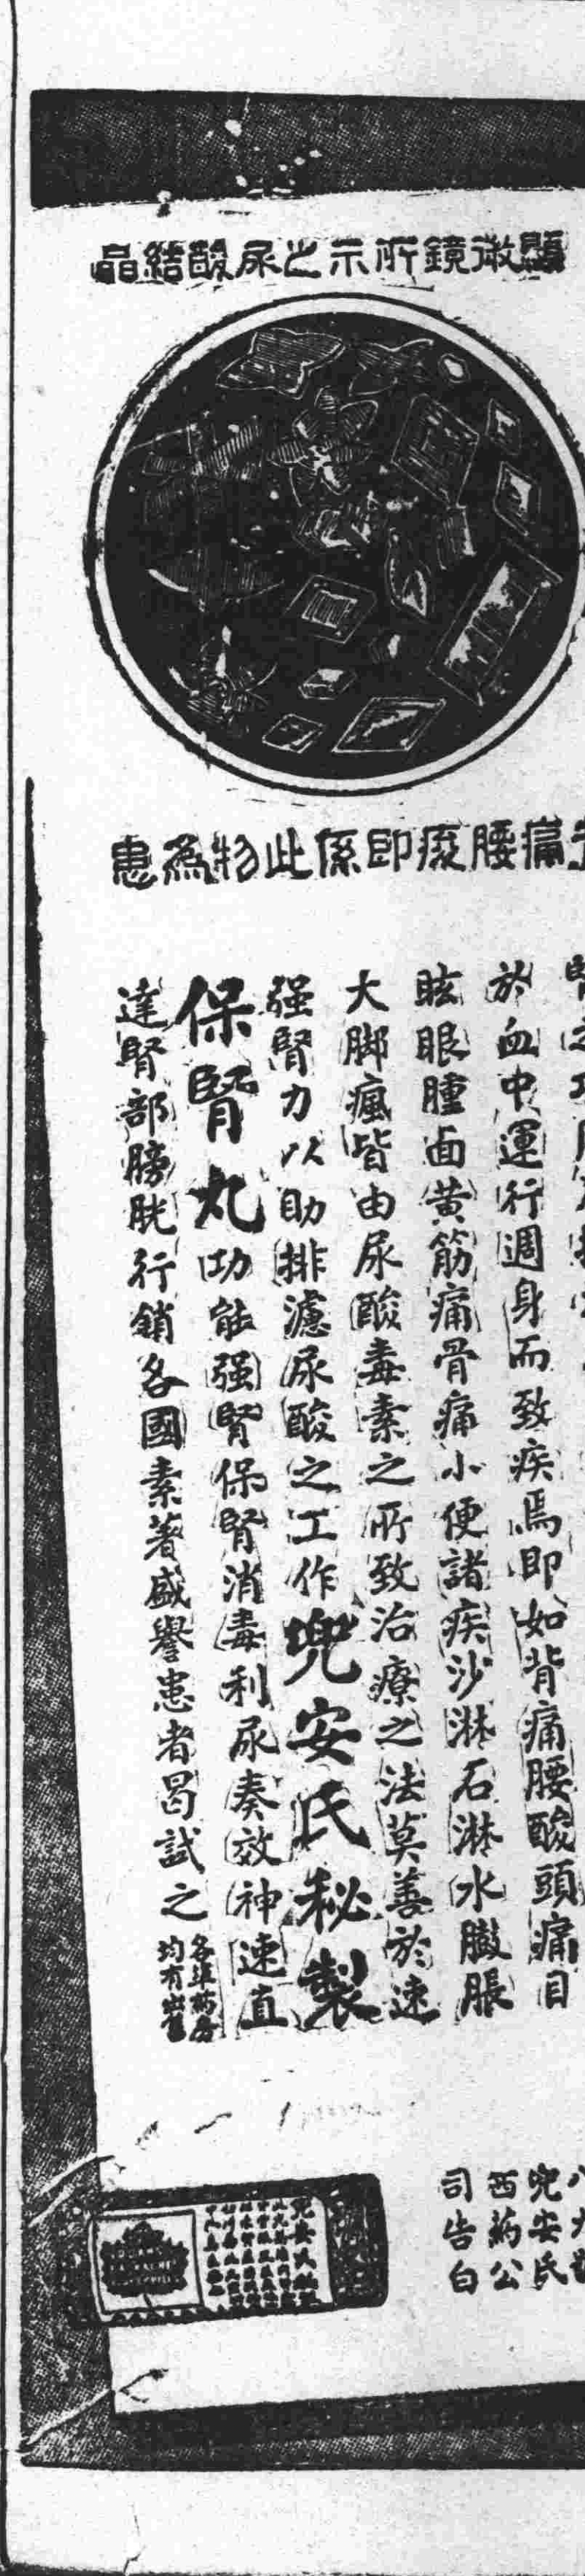 顯微鏡所示之尿酸結晶
痛腰痠即係此物為患
於血中運行週身而致疾焉即如背痛腰酸頭痛目
眩眼腫面黃筋痛骨痛小便諸疾沙淋石淋水臌脹
大脚瘋皆由尿酸毒素之所致治療之法莫善於速
强腎力以助排濾尿酸之工作兜安氏秘製
保腎丸功能强腎保腎消毒利尿奏效神速直
達腎部膀胱行銷各國素著盛譽患者曷試之
各埠葯房
均有出售
兜安氏
西葯公
司告白